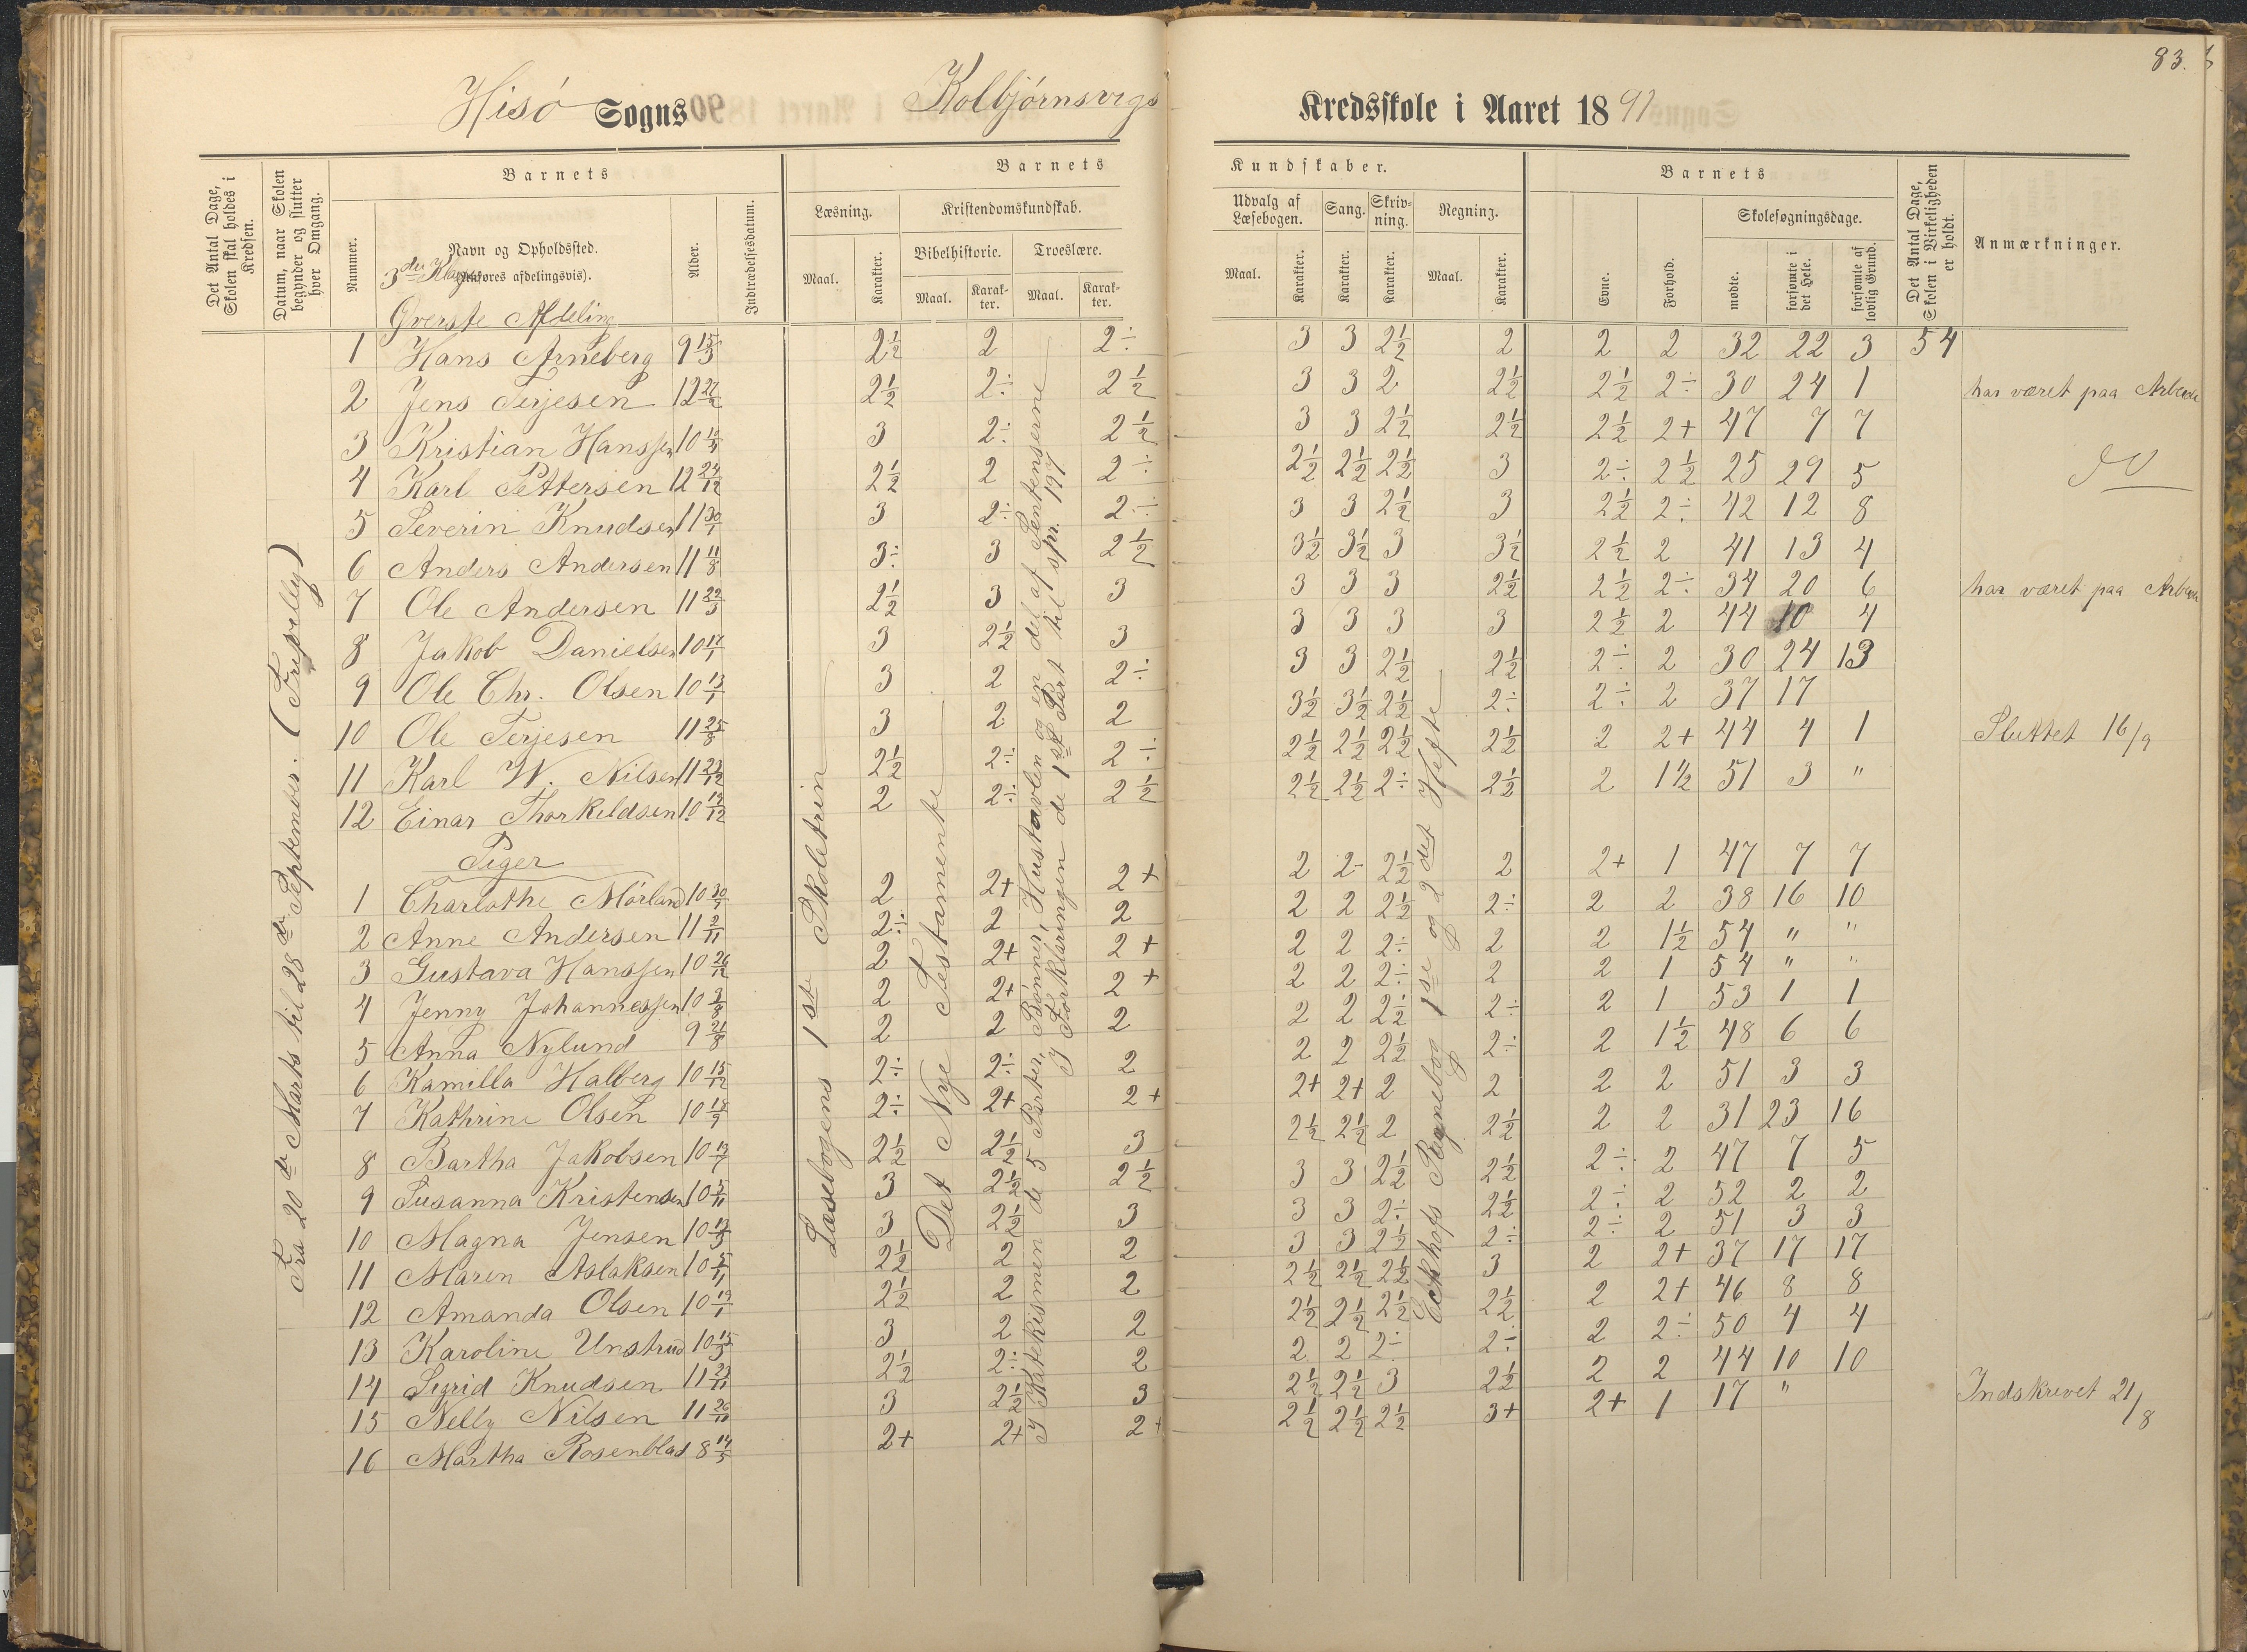 83.
Hisø Sogns Kolbjørnsvigs Kredsskole i Aaret 1891
Det Antal Dage, Skolen skal holdes i Kredsen.
Datum, naar Skolen begynder og slutter hver Omgang.
Barnets
Nummer.
Navn og Opholdssted.
(Anføres afdelingsvis).
Alder.
Indtrædelsesdatum.
Barnets Kundskaber.
Læsning.
Maal.
Karakter.
Kristendomskundskab.
Bibelhistorie.
Maal.
Karakter.
Troeslære.
Maal.
Karakter.
Udvalg af Læsebogen.
Maal.
Karakter.
Sang.
Karakter.
Skrivning.
Karakter.
Regning.
Maal.
Karakter.
Barnets
Evne.
Forhold.
Skolesøgningsdage.
mødte.
forsømte i det Hele.
forsømte af lovlig Grund.
Det Antal Dage, Skolen i Virkeligheden er holdt.
Anmærkninger.
3die Klasse
Øverste Afdeling
Fra 20de Marts til 28de September.
Læsebogens 1ste Skoletrin
Det Nye Testamente
I Katekismen de 5 Parter, Bønner, Hustavlen og en del af Sentenserne
I Forklaringen de 1ste Part til spr. 197
Eckhofs Regnebog 1ste og 2det Hefte
1 Hans Arneberg 9 15/3 2½ 2 2÷ 3 3 2½ 2 2 2 32 22 3 54
2 Jens Terjesen 12 27/2 2½ 2÷ 2½ 3 3 2 2½ 2½ 2÷ 30 24 1 har været paa Arbeide
3 Kristian Hanssen 10 10/4 3 2÷ 2½ 3 3 2½ 2½ 2½ 2+ 47 7 7
4 Karl Pettersen 12 24/12 2½ 2 2÷ 2½ 2½ 2½ 3 2÷ 2½ 25 29 5
5 Severin Knudsen 11 30/1 3 2÷ 2÷ 3 3 2½ 3 2½ 2÷ 42 12 8
6 Anders Andersen 11 11/8 3÷ 3 2½ 3½ 3½ 3 3½ 2½ 2 41 13 4
7 Ole Andersen 11 22/3 2½ 3 3 3 3 3 2½ 2½ 2÷ 34 20 6 har været paa Arbeide
8 Jakob Danielsen 10 17/1 3 2½ 3 3 3 3 3 2½ 2 44 10 4
9 Ole Chr. Olsen 10 13/1 3 2 2÷ 3 3 2½ 2½ 2÷ 2 30 24 13
10 Ole Terjesen 11 25/8 3 2 2 3½ 3½ 2½ 2÷ 2÷ 2 37 17
11 Karl W. Nilsen 11 23/12 2½ 2÷ 2÷ 2½ 2½ 2½ 2½ 2 2+ 44 4 1 Sluttet 16/9
12 Einar Thorkildsen 10 19/12 2 2÷ 2½ 2½ 2½ 2÷ 2½ 2 1½ 51 3 "
Piger
1 Charlothe Mørland 10 30/9 2 2+ 2+ 2 2- 2½ 2 2+ 1 47 7 7
2 Anne Andersen 11 2/11 2÷ 2 2 2 2 2½ 2÷ 2 2 38 16 10
3 Gustava Hanssen 10 26/12 2 2+ 2+ 2 2 2÷ 2 2 1½ 54 " "
4 Jenny Johannessen 10 3/8 2 2+ 2+ 2 2 2÷ 2 2 1 54 " "
5 Anna Nylund 9 21/8 2 2 2 2 2 2½ 2÷ 2 1 53 1 1
6 Kamilla Halberg 10 15/12 2÷ 2÷ 2 2 2 2½ 2÷ 2 1½ 48 6 6
7 Kathrine Olsen 10 18/9 2÷ 2+ 2+ 2+ 2+ 2 2 2 2 51 3 3
8 Bartha Jakobsen 10 13/7 2½ 2½ 3 2½ 2½ 2 2½ 2 2 31 23 16
9 Susanna Kristensen 10 5/11 3 2½ 2½ 3 3 2½ 2½ 2÷ 2 47 7 5
10 Magna Jensen 10 13/3 3 2½ 3 3 3 2÷ 2½ 2÷ 2 52 2 2
11 Maren Aslaksen 10 5/11 2½ 2 2 3 3 2½ 2÷ 2÷ 2 51 3 3
12 Amanda Olsen 10 19/1 2½ 2 2 2½ 2½ 2½ 3 2 2+ 37 17 17
13 Karoline Unstrud 10 15/3 3 2 2 2½ 2½ 2½ 2½ 2 2+ 46 8 8
14 Sigrid Knudsen 11 23/11 2½ 2÷ 2 2 2 2÷ 2÷ 2 2÷ 50 4 4
15 Nelly Nilsen 11 26/10 3 2½ 3 2½ 2½ 3 2½ 2 2 44 10 10
16 Martha Rosenblad 8 14/5 2+ 2+ 2+ 2½ 2½ 2½ 3+ 2+ 1 17 " Indskrevet 21/8